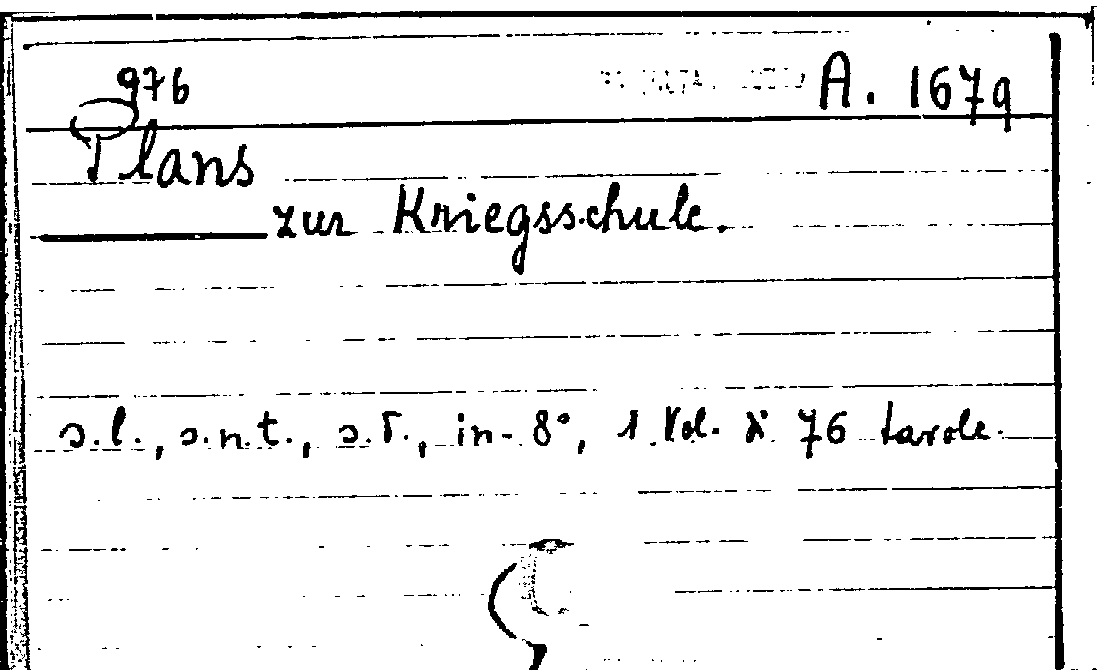 976 A. 1679
Plans
zur Kriegsschule.
s.l., s.n.t., s.d., in-8°, 1 Vol. di 76 tavole.